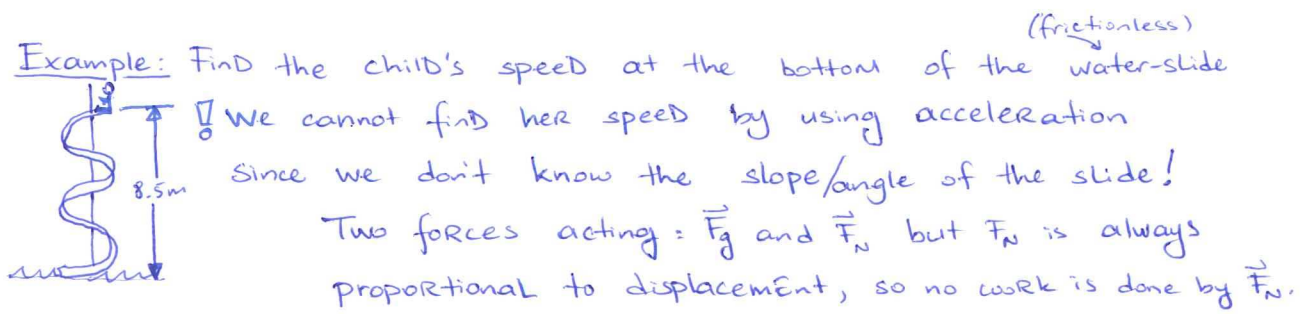 (frictionless)
Example: Find the child's speed at the bottom of the water-slide
! We cannot find her speed by using acceleration
8.5m
since we don't know the slope/angle of the slide!
Two forces acting: F⃗g and F⃗N but FN is always
proportional to displacement, so no work is done by F⃗N.